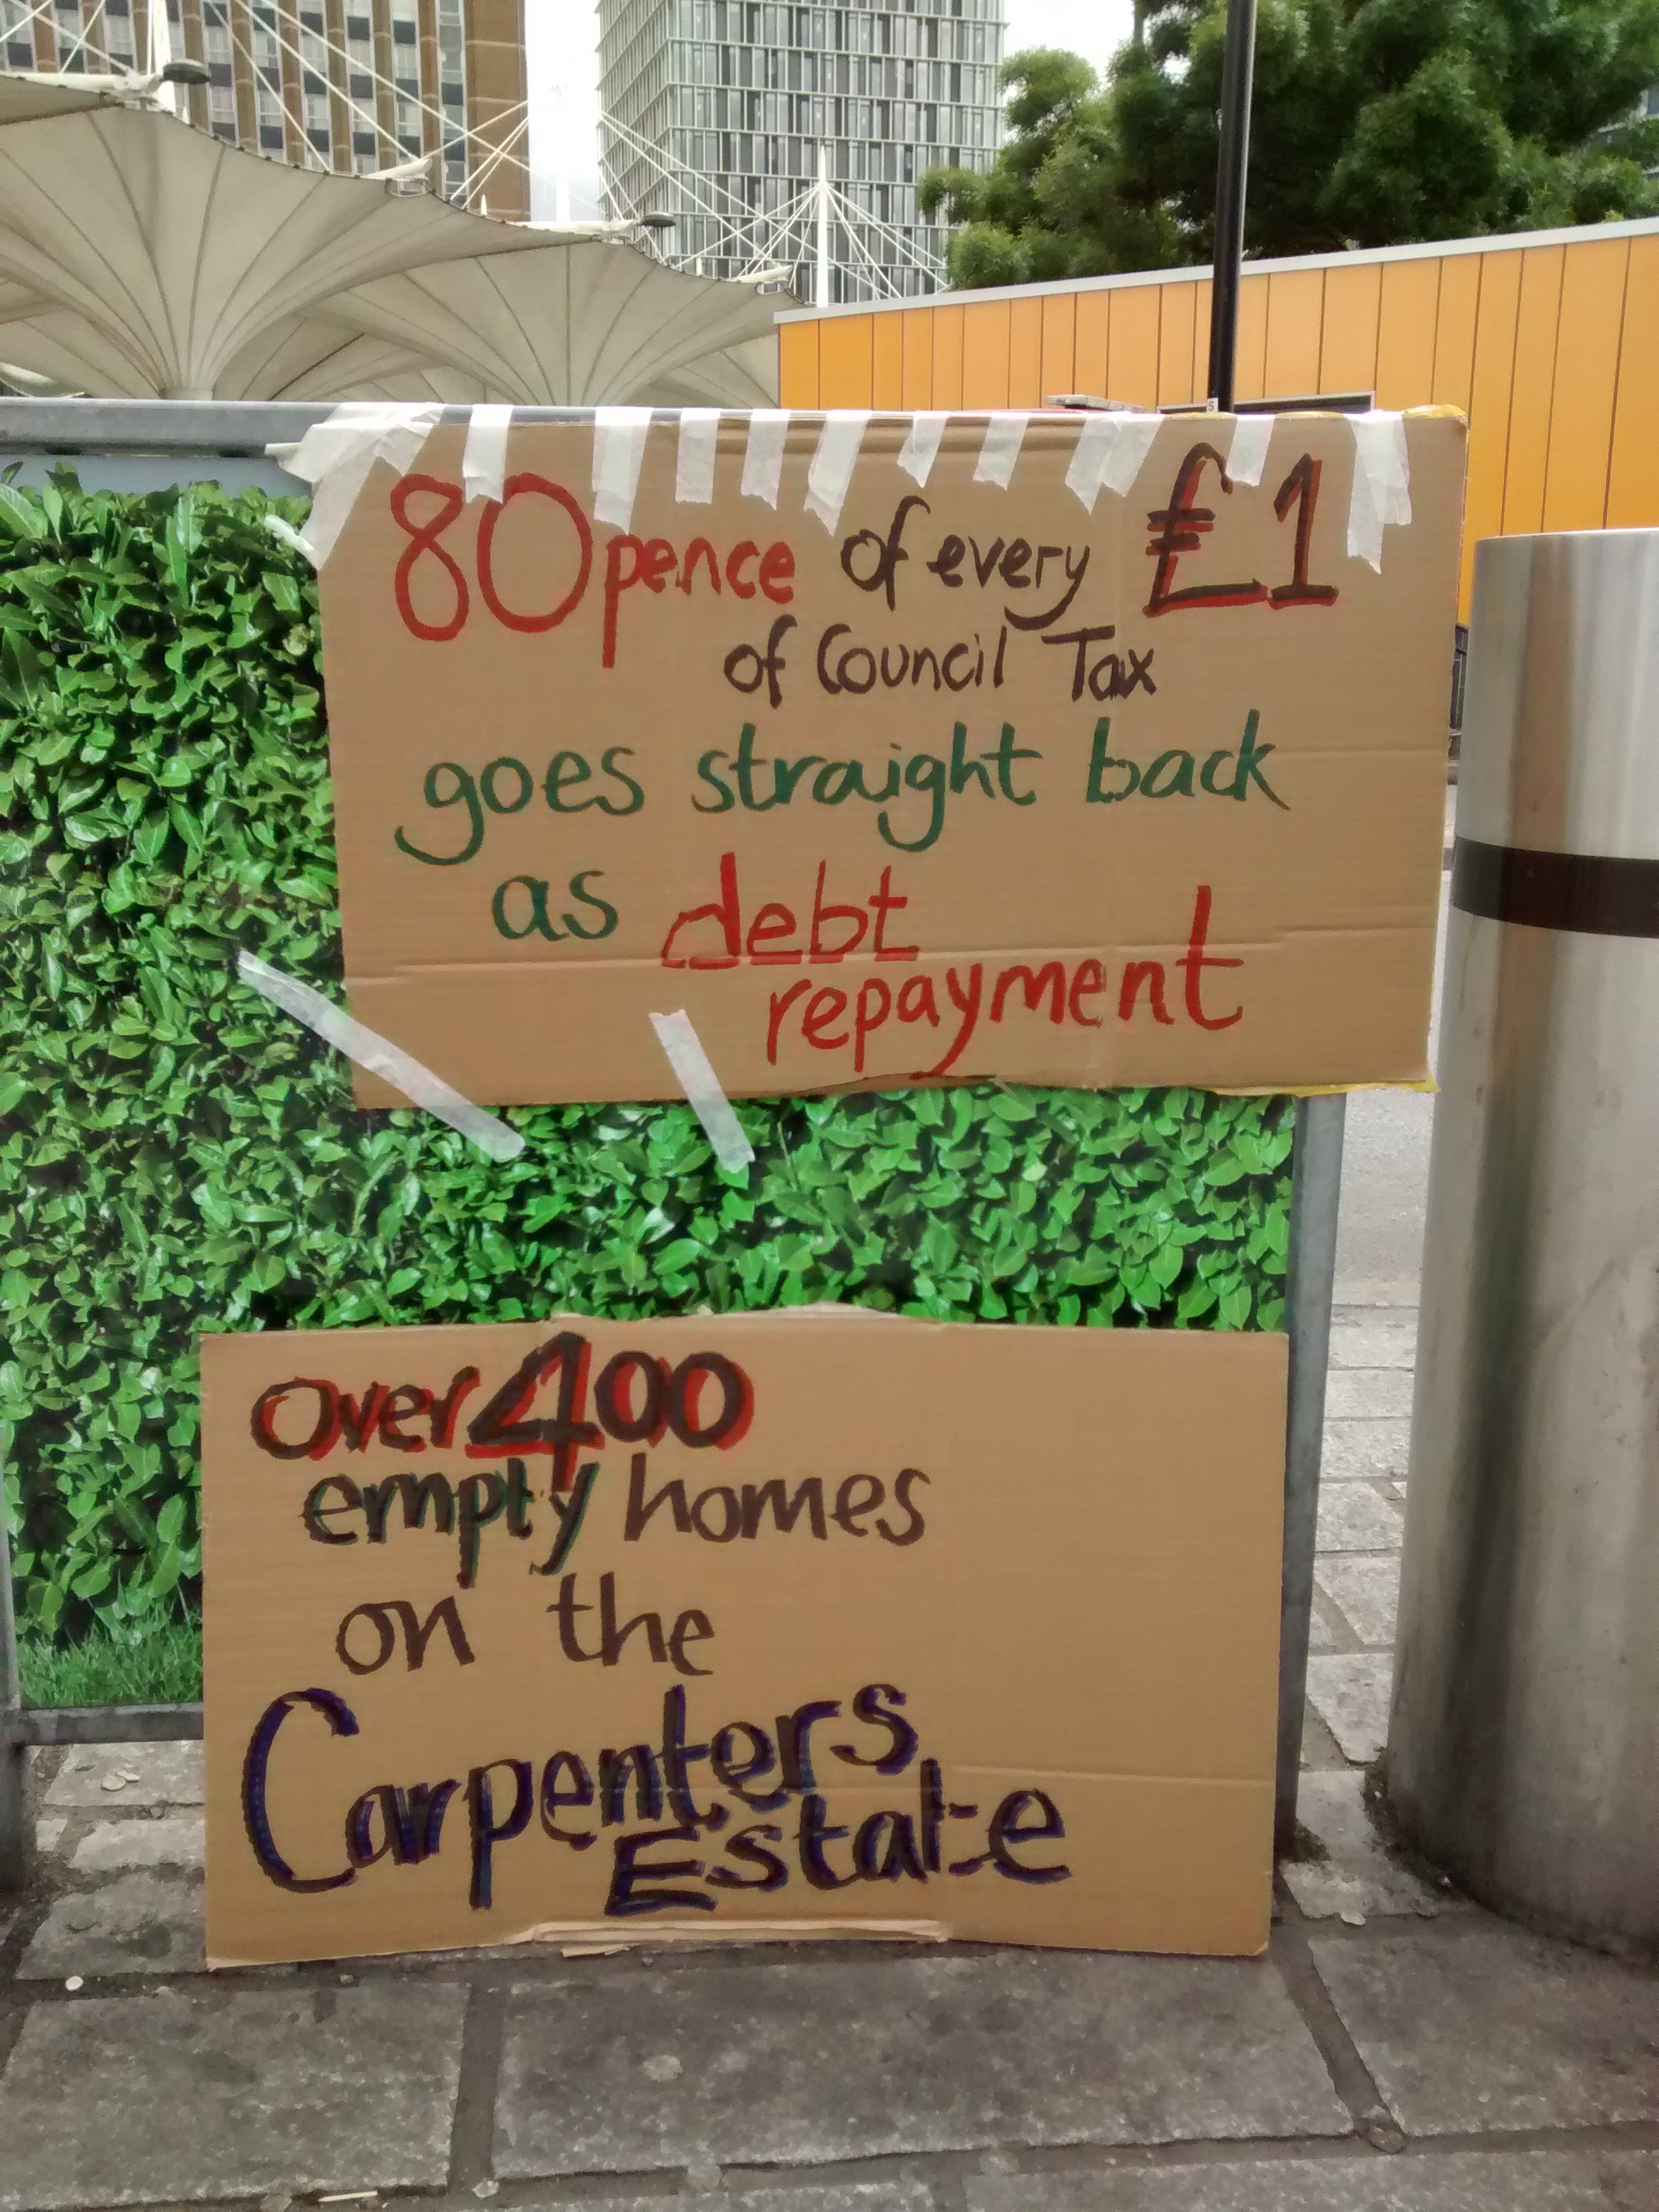 80pence of every £1
of Council Tax
goes straight back
as debt
repayment
Over 400
empty homes
on the
Carpenters
Estate